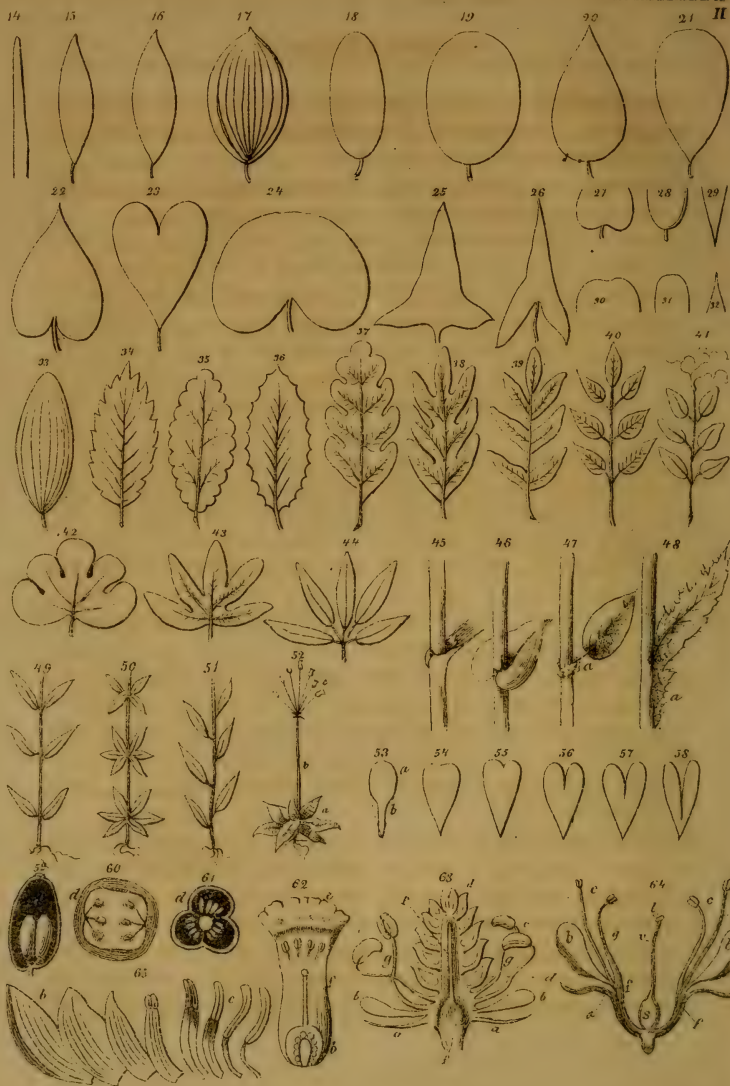 II
14 15 16 17 18 19 20 21
22 23 24 25 26 27 28 29
30 31 32
33 34 35 36 37 38 39 40 41
42 43 44 45 46 47 48
a a
49 50 51 52
b
a
53 54 55 56 57 58
a
b
59 60 61 62 63 64
d d e f d c c c
g g b g v. l
f b b d
b a a a s f f
65
b c